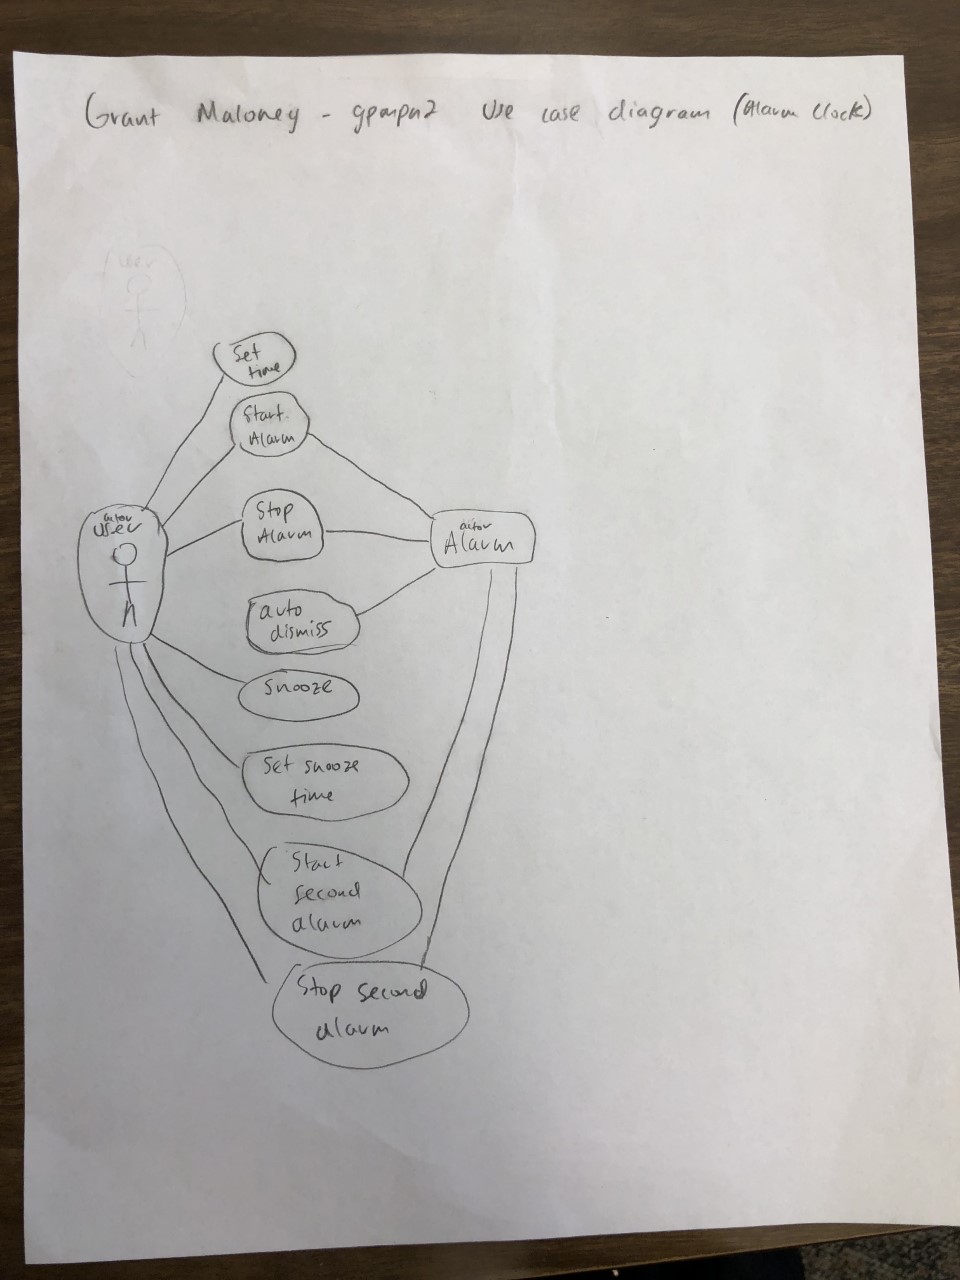 Grant Maloney - gpmpn2 Use case diagram (Alarm Clock)
user
Set
time
Start
Alarm
actor
user
Stop
Alarm
actor
Alarm
auto
dismiss
Snooze
Set snooze
time
Start
second
alarm
Stop second
alarm